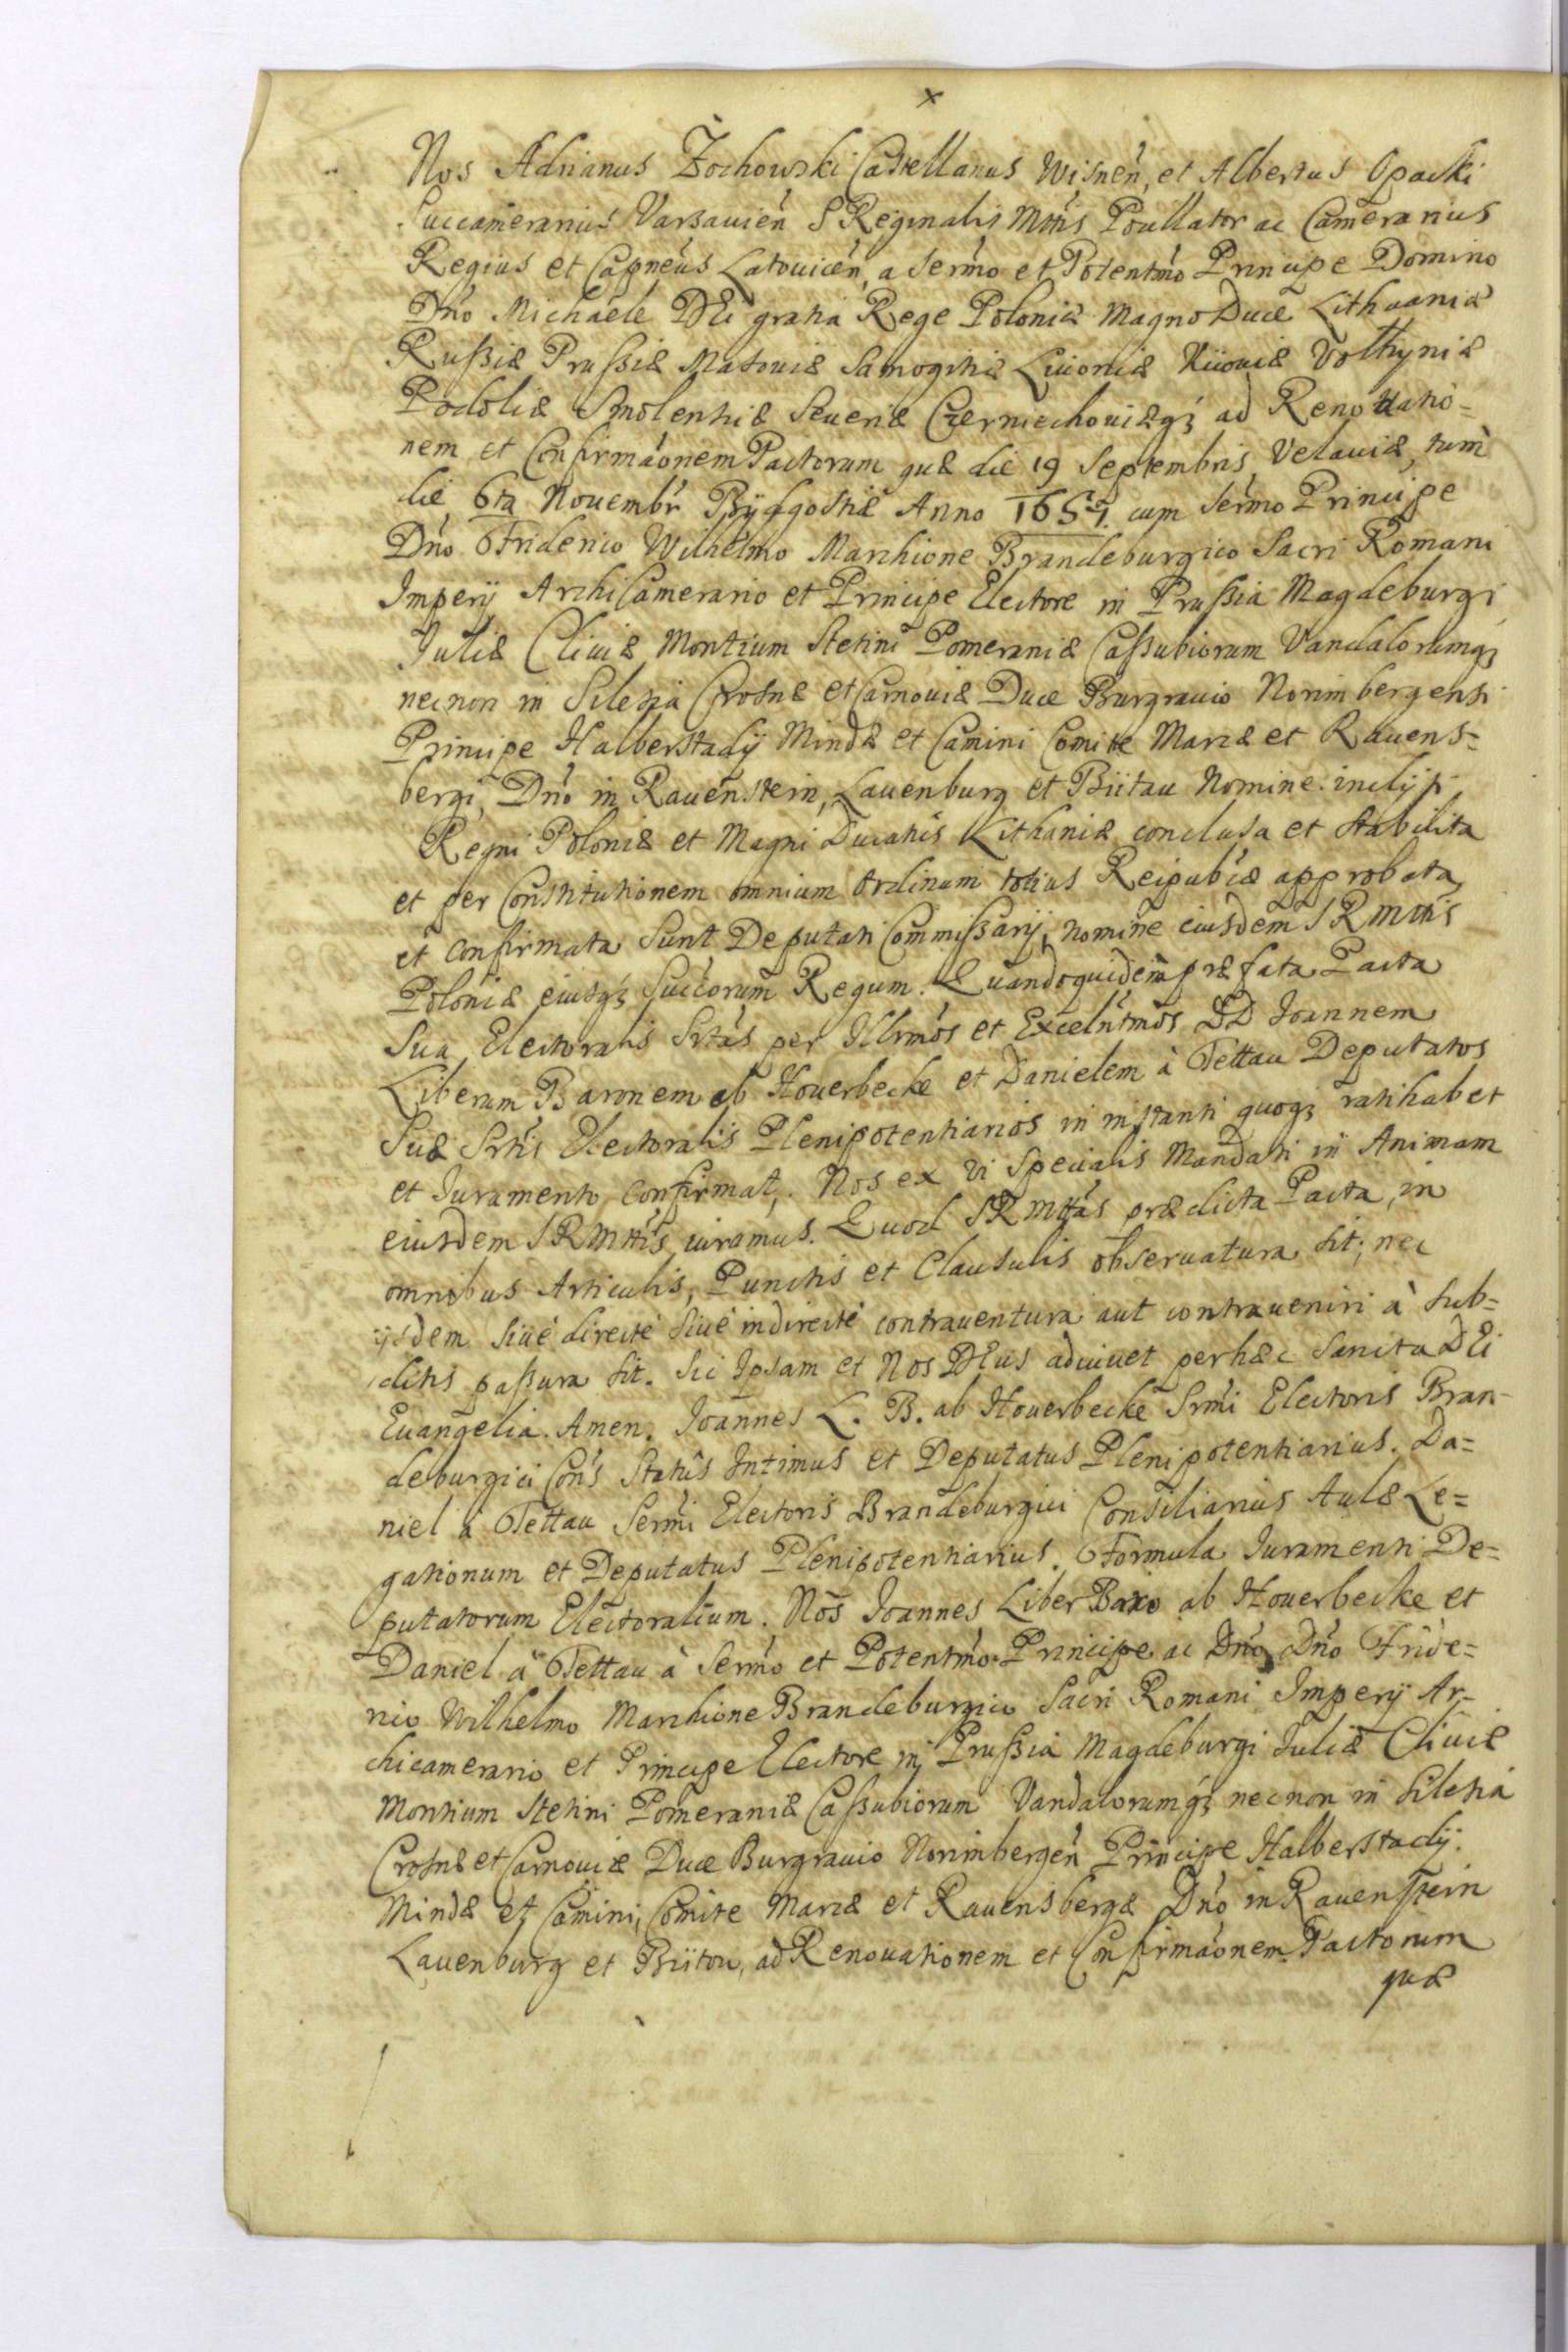 x
Nos Adrianus Żochowski Castellanus Wisnen̄, et Albertus Opacki
Succamerarius Varsauien̄ S Reginalis Mttis Pocillator ac Camerarius
Regius et Capneus Latouicen̄, a Sermo et Potentmo Principe Domino
Dno Michaele DEi gratia Rege Poloniæ Magno Duce Lithuaniæ
Rußiæ Prußiæ Masouiæ Samogitiæ Liuoniæ Kiiouiæ Volhyniæ
Podoliæ Smolensiæ Seueriæ Czerniechouiæqꝫ ad Renouatio=
nem et Confirmãonem Pactorum quæ die 19 Septembris Velauiæ, tum
die 6ta Nouembr Bydgostiæ Anno 1657. cum Sermo Principe
Dno Friderico Wilhelmo Marchione Brandeburgico Sacri Romani
Imperij ArchiCamerario et Principe Electore in Prußia Magdeburgi
Juliæ Cliuiæ Montium Stetini Pomeraniæ Caßubiorum Vandalorumqꝫ
necnon in Silesia Crosnæ et Carnouiæ Duce Burgrauio Norimbergensi
Principe Halberstadij Mindæ et Camini Comite Marcæ et Rauens=
bergi, Dno in Rauenstein, Lauenburg et Biitau Nomine inclyti
Regni Poloniæ et Magni Ducatus Lithaniæ conclusa et stabilita
et per Constitutionem omnium Ordinum totius Reipubcæ approbata
et confirmata sunt Deputati Commißarij, nomine eiusdem SRMttis
Poloniæ eiusqꝫ Succorum Regum. Quandoquidem præfata Pacta
Sua Electoralis Srtas per Illrmos et Excelntmos DD Joannem
Liberum Baronem ab Houerbecke et Danielem à Tettau Deputatos
Suæ Srtis Electoralis Plenipotentiarios in instanti quoqꝫ ratihabet
et Juramento confirmat, Nos ex vi specialis Mandati in Animam
eiusdem SRMttis iuramus. Quod SRMttas prædicta Pacta, in
omnibus Articulis, Punctis et Clausulis obseruatura sit; nec
ijsdem siue directe siue indirecte contrauentura aut contraueniri à sub=
ditis paßura sit. Sic Ipsam et Nos DEus adiuuet per hæc Sancta DEi
Euangelia. Amen. Joannes L. B. ab Houerbecke Srmi Electoris Bran-
deburgici Cons Status Intimus et Deputatus Plenipotentiarius. Da=
niel à Tettau Sermi Electoris Brandeburgici Consiliarius Aulæ Le=
gationum et Deputatus Plenipotentiarius. Formula Juramenti De=
putatorum Electoralium. Nos Joannes Liber Baro ab Houerbecke et
Daniel à Tettau à Sermo et Potentmo Principe ac Dno Dno Fride=
rico Wilhelmo Marchione Brandeburgico Sacri Romani Imperij Ar-
chicamerario et Principe Electore in Prußia Magdeburgi Juliæ Cliuiæ
Montium Stetini Pomeraniæ Caßubiorum Vandalorumqꝫ necnon in Silesia
Crosnæ et Carnouiæ Duce Burgrauio Norimbergen̄ Principe Halberstadij.
Mindæ et Camini, Comite Marcæ et Rauensbergæ Dno in Rauenstein
Lauenburg et Biitou, ad Renouationem et Confirmãonem Pactorum
quæ